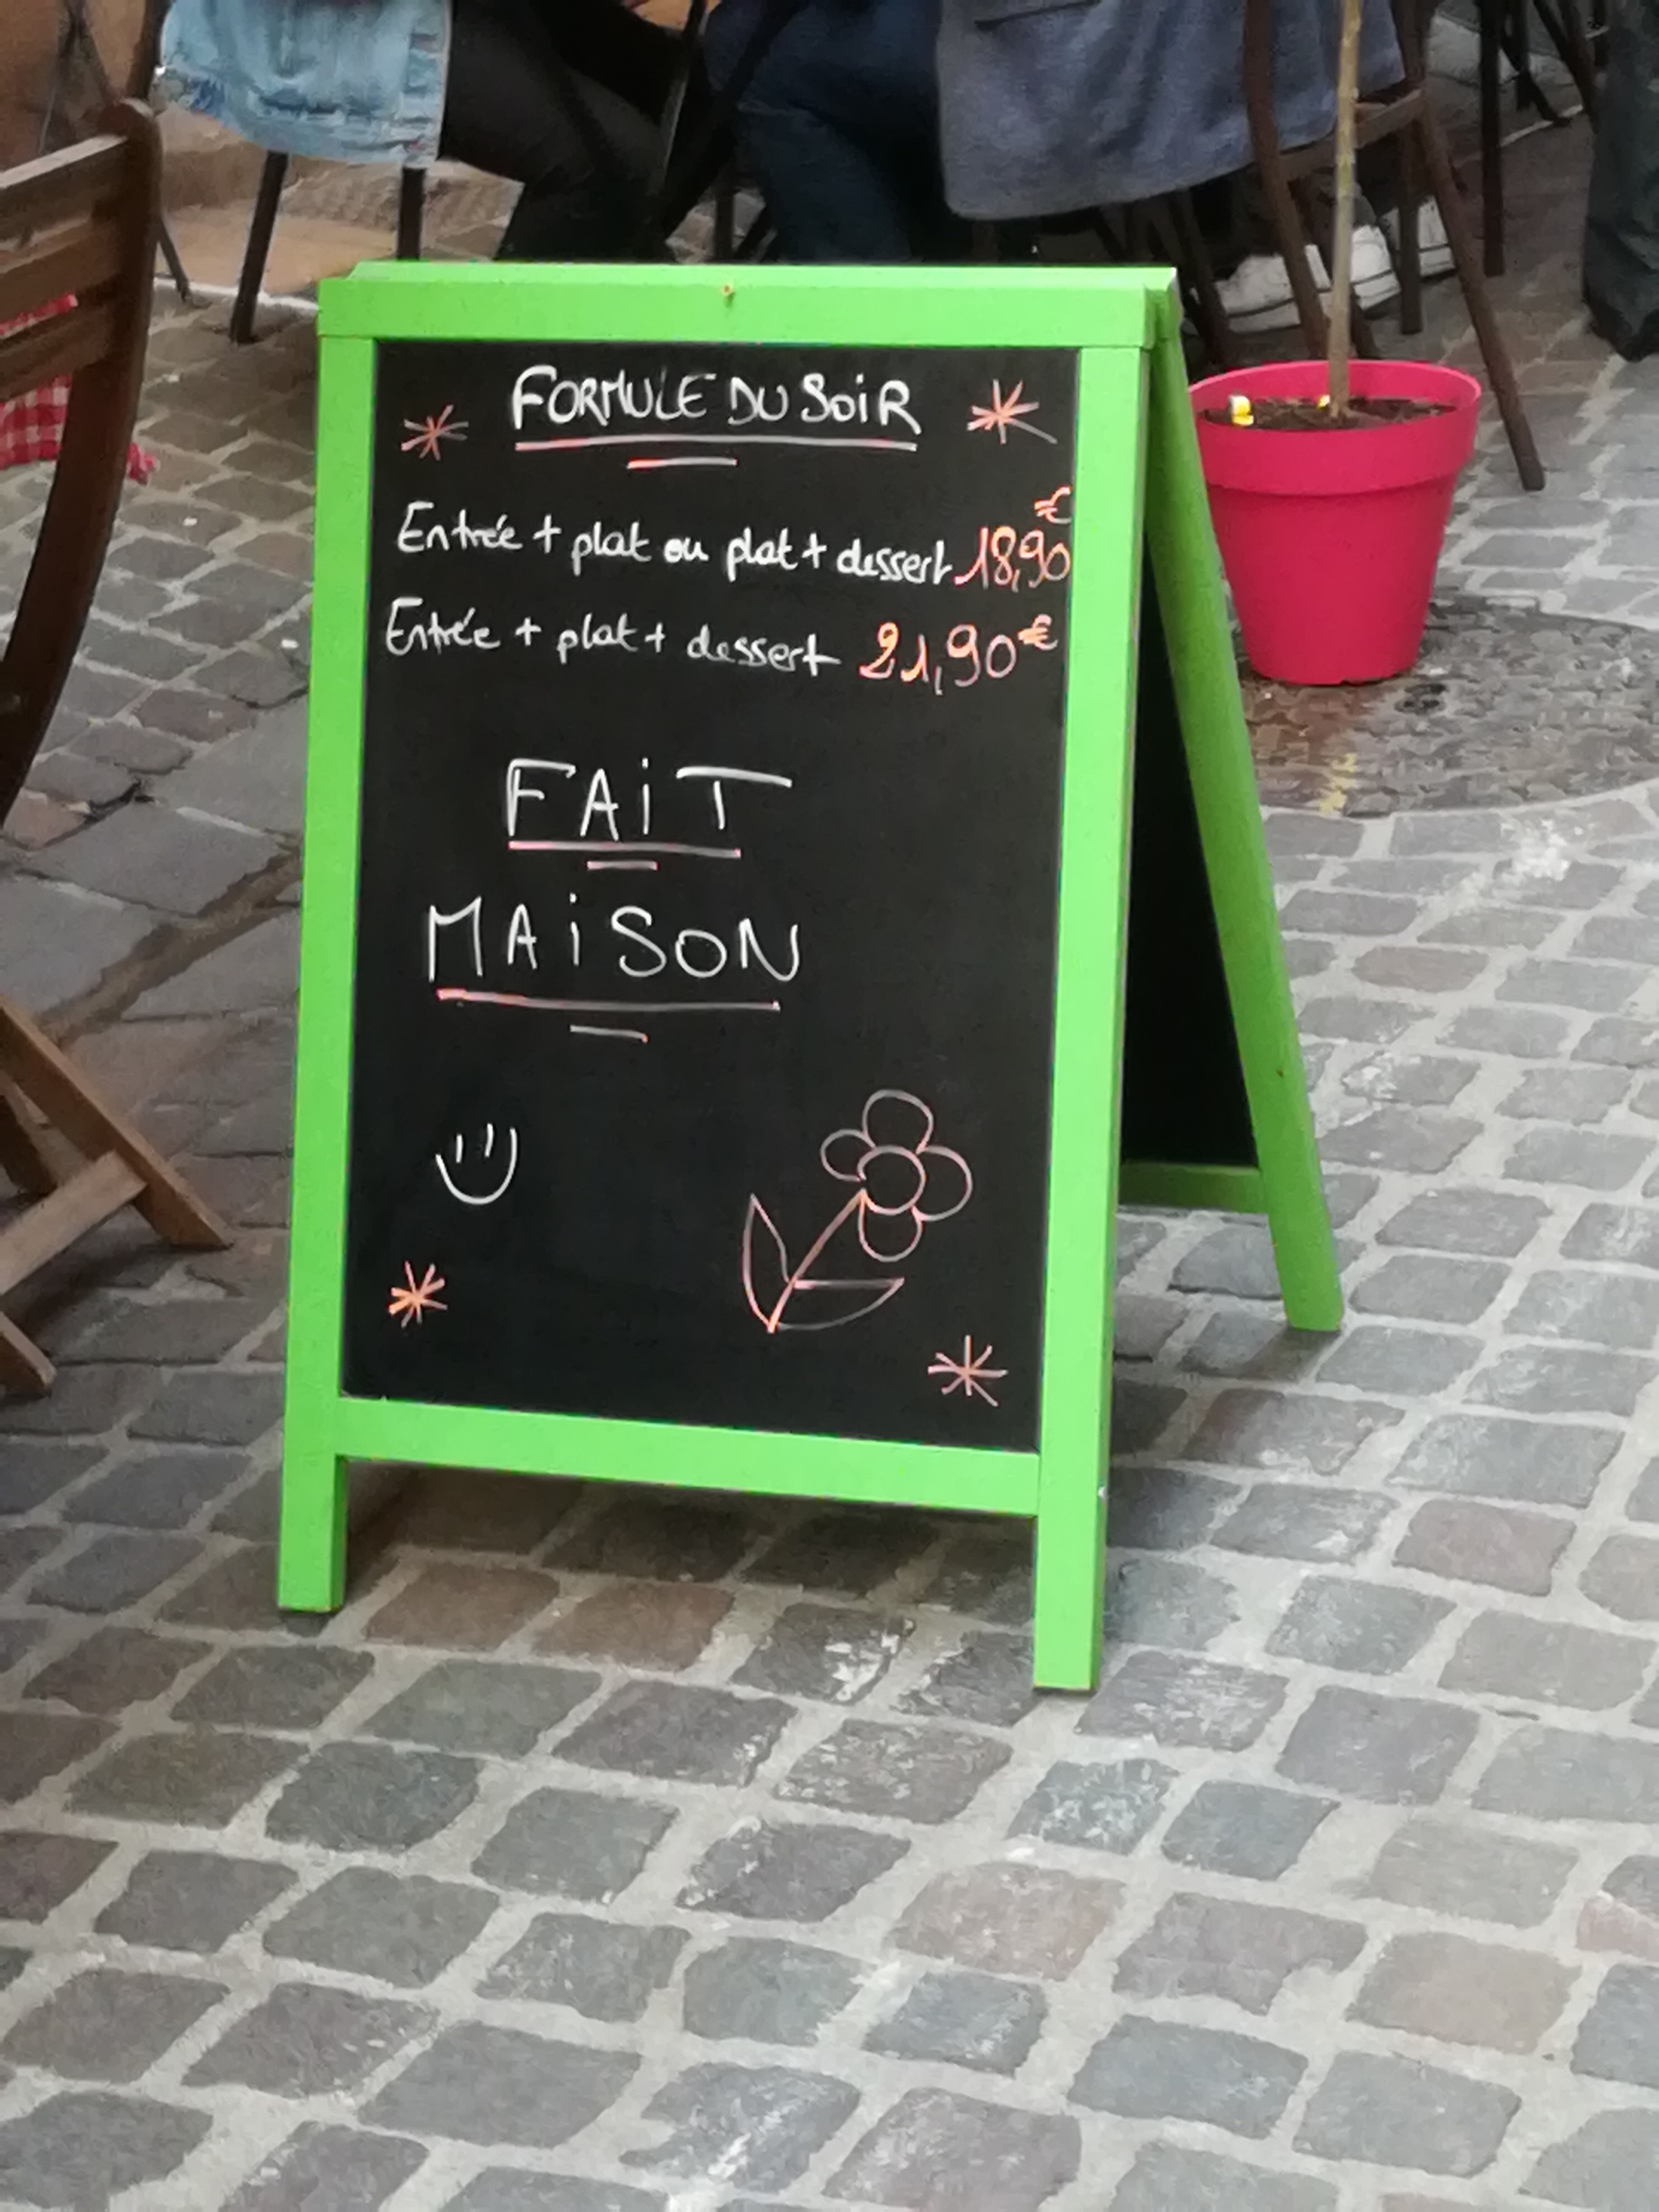 FORMULE DU SOIR
Entrée + plat ou plat + dessert 18,90€
Entrée + plat + dessert 21,90€
FAiT
MAiSON